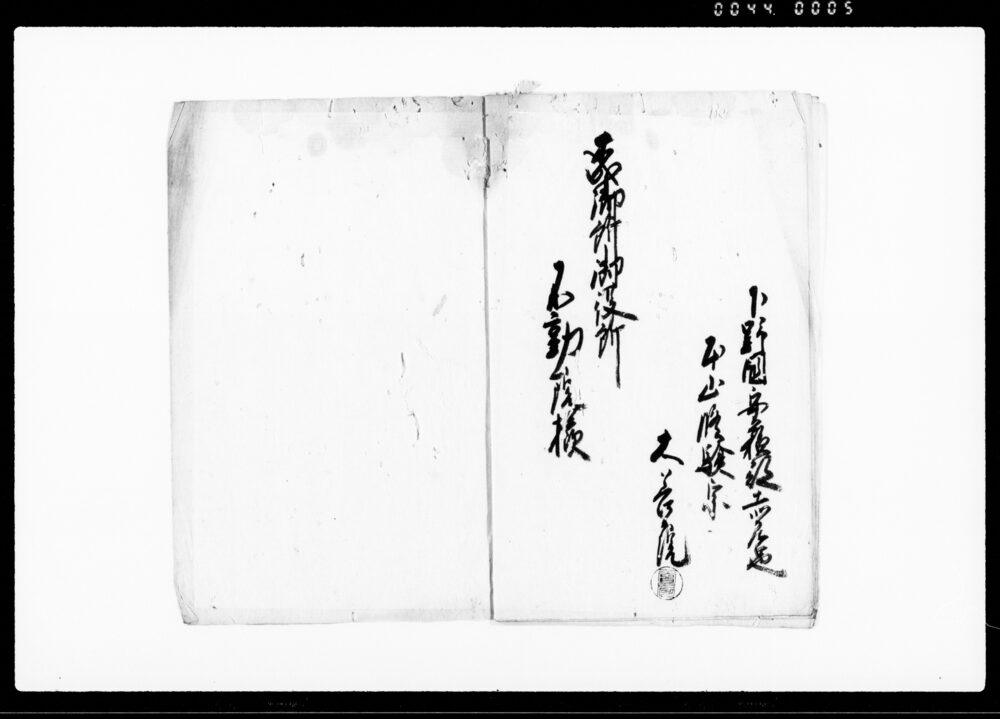 0044. 0005
下野國安蘇郡
本山修験宗
大善院
御所御役所
不動院様